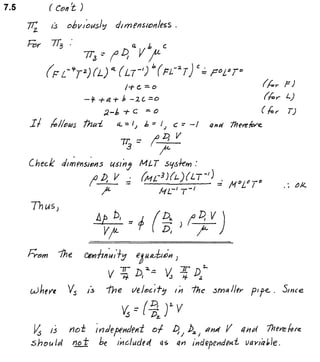 7.5 (con't)
π₂ is obviously dimensionless.
For π₃:
π₃ = ρ D₁ᵃ Vᵇ μᶜ
(FL⁻⁴T²)(L)ᵃ(LT⁻¹)ᵇ(FL⁻²T)ᶜ ≐ F⁰L⁰T⁰
1 + c = 0 (for F)
-4 + a + b - 2c = 0 (for L)
2 - b + c = 0 (for T)
It follows that a = 1, b = 1, c = -1 and therefore
π₃ = ρ D₁ V / μ
Check dimensions using MLT system:
ρ D₁ V / μ ≐ (ML⁻³)(L)(LT⁻¹) / ML⁻¹T⁻¹ ≐ M⁰L⁰T⁰ ∴ OK
Thus,
Δp D₁ / Vμ = φ (D₂ / D₁, ρ D₁ V / μ)
From the continuity equation,
V π/4 D₁² = Vₛ π/4 D₂²
where Vₛ is the velocity in the smaller pipe. Since
Vₛ = (D₁ / D₂)² V
Vₛ is not independent of D₁, D₂, and V and therefore
should not be included as an independent variable.